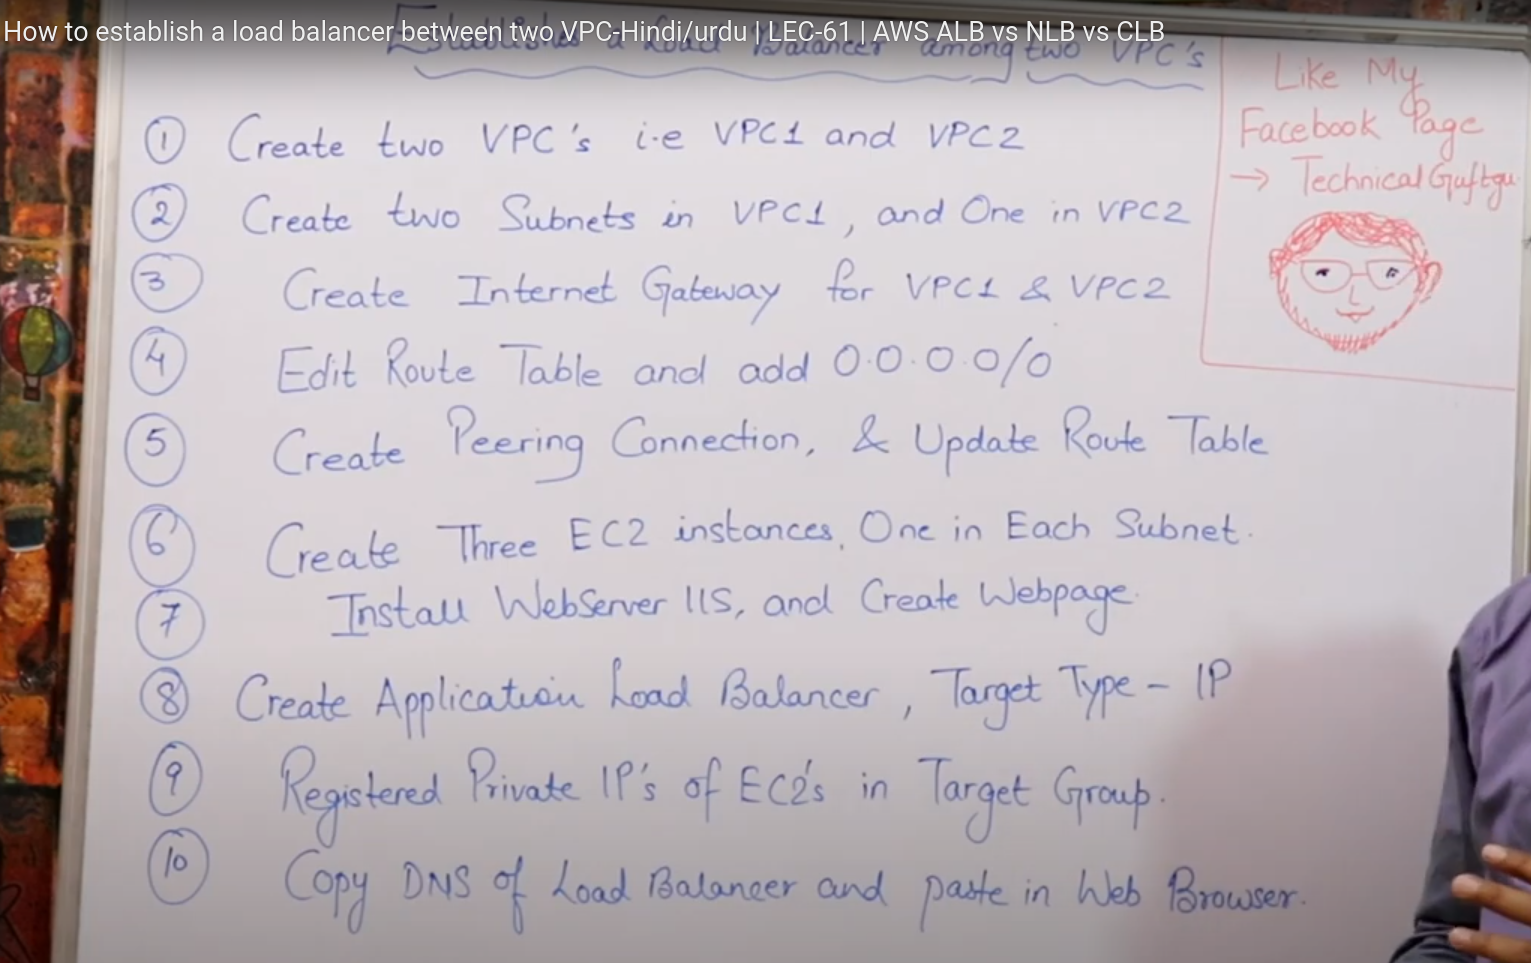 How to establish a load balancer between two VPC-Hindi/urdu | LEC-61 | AWS ALB vs NLB vs CLB
Establishing a Load Balancer among two VPC's
① Create two VPC's i.e VPC1 and VPC2
② Create two Subnets in VPC1, and One in VPC2
③ Create Internet Gateway for VPC1 & VPC2
④ Edit Route Table and add 0.0.0.0/0
⑤ Create Peering Connection, & Update Route Table
⑥ Create Three EC2 instances, One in Each Subnet.
⑦ Install WebServer IIS, and Create Webpage.
⑧ Create Application Load Balancer, Target Type - IP
⑨ Registered Private IP's of EC2's in Target Group.
⑩ Copy DNS of Load Balancer and paste in Web Browser.
Like My
Facebook Page
→ Technical Guftgu